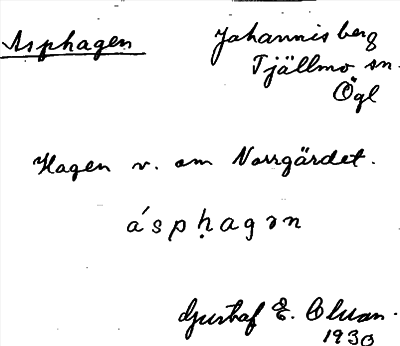 Asphagen
Johannisberg
Tjällmo sn.
Ögl
Hagen v. om Norrgärdet.
áspḥagən
Gustaf E.
1930